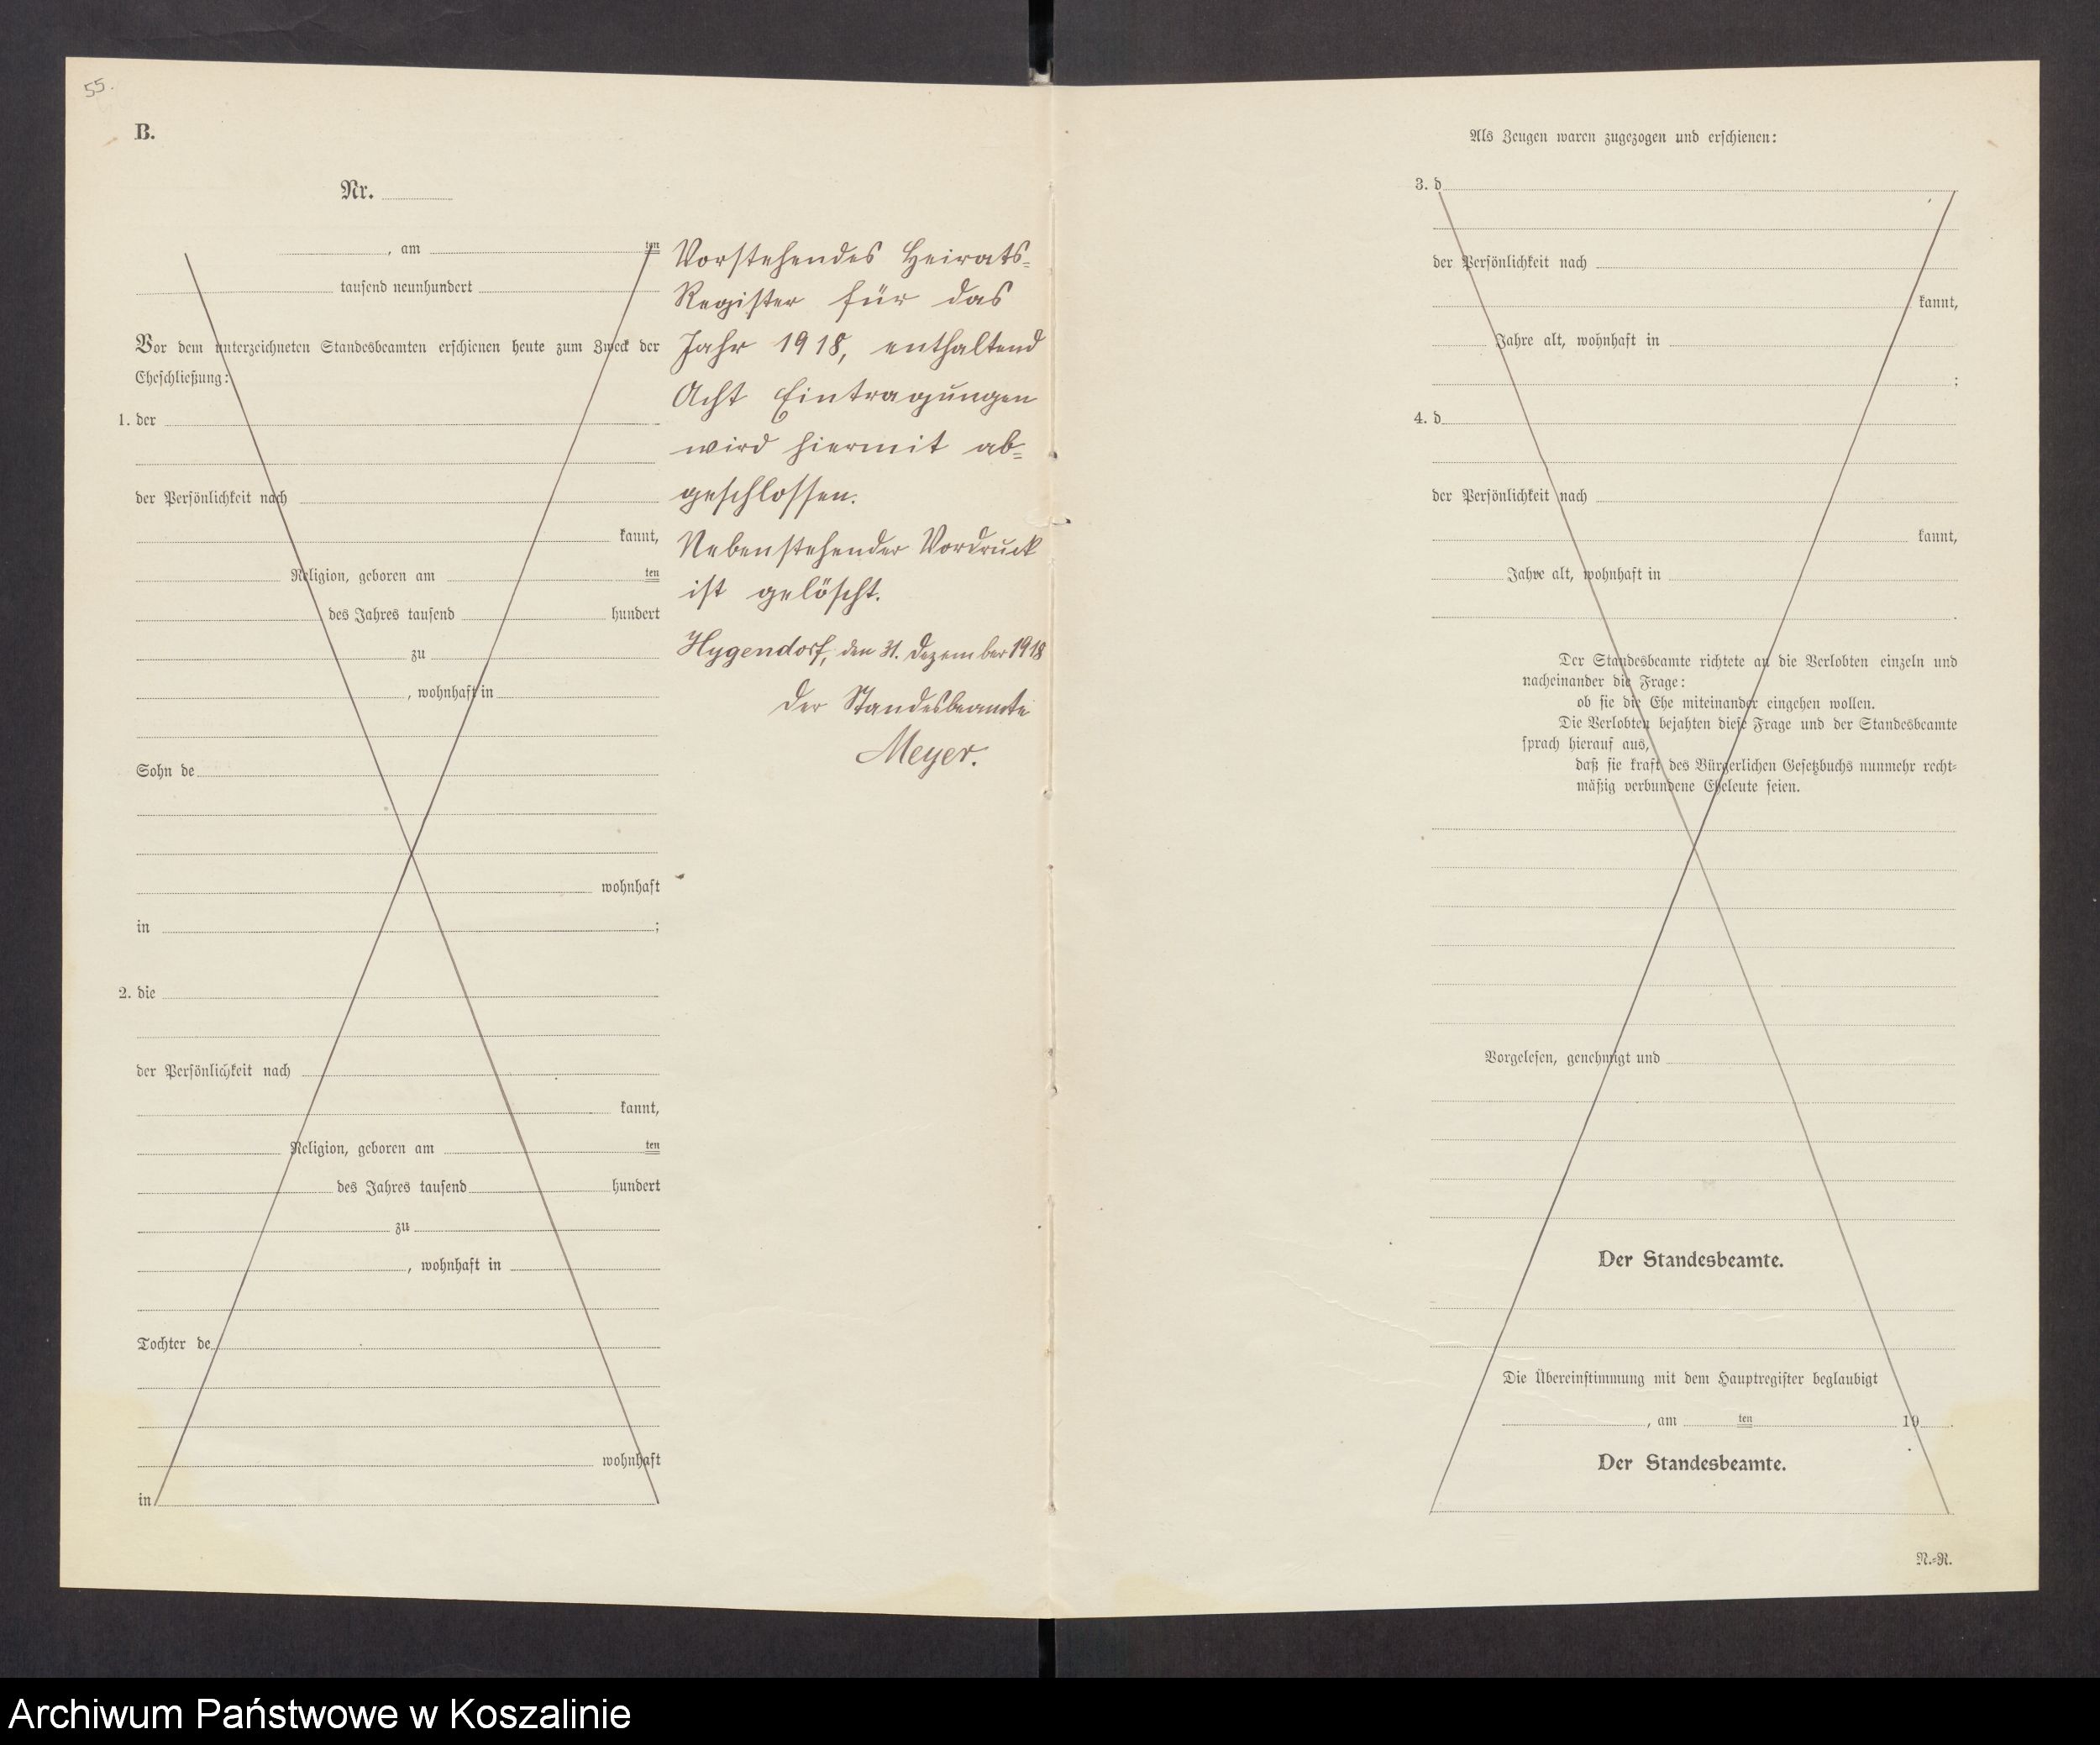 55.
B.
Nr.
, am ten
tausend neunhundert
Vor dem unterzeichneten Standesbeamten erschienen heute zum Zweck der
Eheschließung:
1. der
der Persönlichkeit nach
kannt,
Religion, geboren am ten
des Jahres tausend hundert
zu
, wohnhaft in
Sohn de
wohnhaft
in ;
2. die
der Persönlichkeit nach
kannt,
Religion, geboren am ten
des Jahres tausend hundert
zu
, wohnhaft in
Tochter de
wohnhaft
in
Vorstehendes Heirats-
Register für das
Jahr 1918, enthaltend
Acht Eintragungen
wird hiermit ab-
geschlossen.
Nebenstehender Vordruck
ist gelöscht.
Hygendorf, den 31. Dezember 1918
Der Standesbeamte
Meyer.
Als Zeugen waren zugezogen und erschienen:
3. d
der Persönlichkeit nach
kannt,
Jahre alt, wohnhaft in
;
4. d
der Persönlichkeit nach
kannt,
Jahre alt, wohnhaft in
.
Der Standesbeamte richtete an die Verlobten einzeln und
nacheinander die Frage:
ob sie die Ehe miteinander eingehen wollen.
Die Verlobten bejahten diese Frage und der Standesbeamte
sprach hierauf aus,
daß sie kraft des Bürgerlichen Gesetzbuchs nunmehr recht-
mäßig verbundene Eheleute seien.
Vorgelesen, genehmigt und
Der Standesbeamte.
Die Übereinstimmung mit dem Hauptregister beglaubigt
, am ten 19 .
Der Standesbeamte.
N.-R.
Archiwum Państwowe w Koszalinie